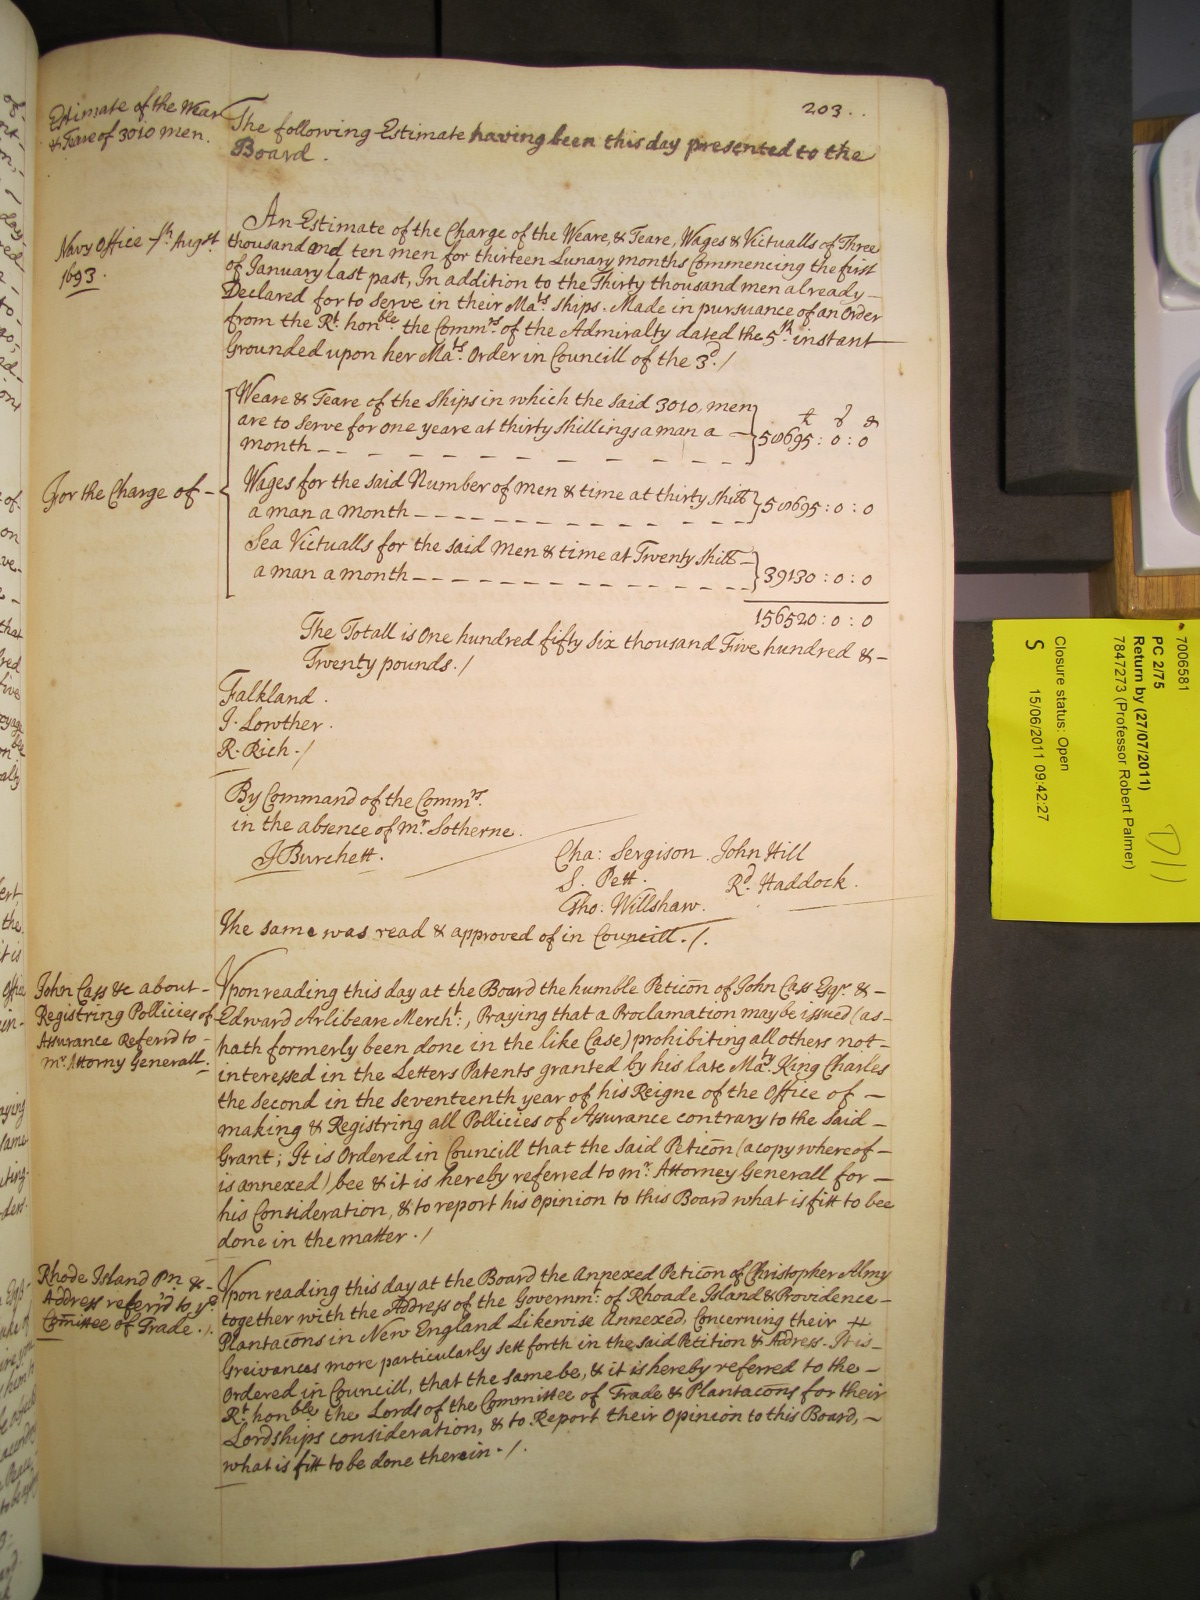 203.
Estimate of the Wear
& Teare of 3010 men.
The following Estimate having been this day presented to the
Board.
Navy Office 7th Augst.
1693.
An Estimate of the Charge of the Weare, & Teare, Wages & Victualls of Three
thousand and ten men for thirteen Lunary months Commencing the first
of January last past, In addition to the Thirty thousand men already
Declared for to serve in their Mats. ships. Made in pursuance of an Order
from the Rt. honble. the Commrs. of the Admiralty dated the 5th. instant
Grounded upon her Mats. Order in Councill of the 3d./
For the Charge of
Weare & Teare of the ships in which the said 3010, men
are to serve for one yeare at thirty shillings a man a
month
50695 : 0 : 0
Wages for the said Number of men & time at thirty shill
a man a month
50695 : 0 : 0
Sea Victualls for the said men & time at Twenty shill
a man a month
39130 : 0 : 0
156520 : 0 : 0
The Totall is One hundred fifty six thousand Five hundred &
Twenty pounds./
Falkland.
J. Lowther.
R. Rich./
By Command of the Commrs.
in the absence of mr. Sotherne.
J Burchett.
Cha: Sergison John Hill
S. Pett. Rd. Haddock.
Tho: Willshaw.
The same was read & approved of in Councill./.
John Cass &c about
Registring Pollicies of
Assurance Referrd to
mr. Attorny Generall.
Upon reading this day at the Board the humble Peticōn of John Cass Esqr. &
Edward Arlibeare Mercht:, Praying that a Proclamation may be issued (as
hath formerly been done in the like Case) prohibiting all others not
interessed in the Letters Patents granted by his late Maty. King Charles
the Second in the seventeenth year of his Reigne of the Office of
making & Registring all Pollicies of Assurance contrary to the said
Grant; It is Ordered in Councill that the said Peticōn (a copy whereof
is annexed) bee & it is hereby referred to mr. Attorney Generall for
his Consideration, & to report his Opinion to this Board what is fitt to bee
done in the matter./
Rhode Island Pn. &
Address referr'd to ye.
Comittee of Trade./.
Upon reading this day at the Board the Annexed Peticōn of Christopher Almy
together with the Address of the Governmt. of Rhoade Island & Providence
Plantacōns in New England Likewise Annexed, Concerning their
Greivances more particularly sett forth in the said Petition & Address. It is
Ordered in Councill, that the same be, & it is hereby referred to the
Rt. honble the Lords of the Committee of Trade & Plantacōns for their
Lordships consideration, & to Report their Opinion to this Board,
what is fitt to be done therein./.
7006581
PC 2/75
Return by (27/07/2011)
7847273 (Professor Robert Palmer)
Closure status: Open
S 15/06/2011 09:42:27
D11